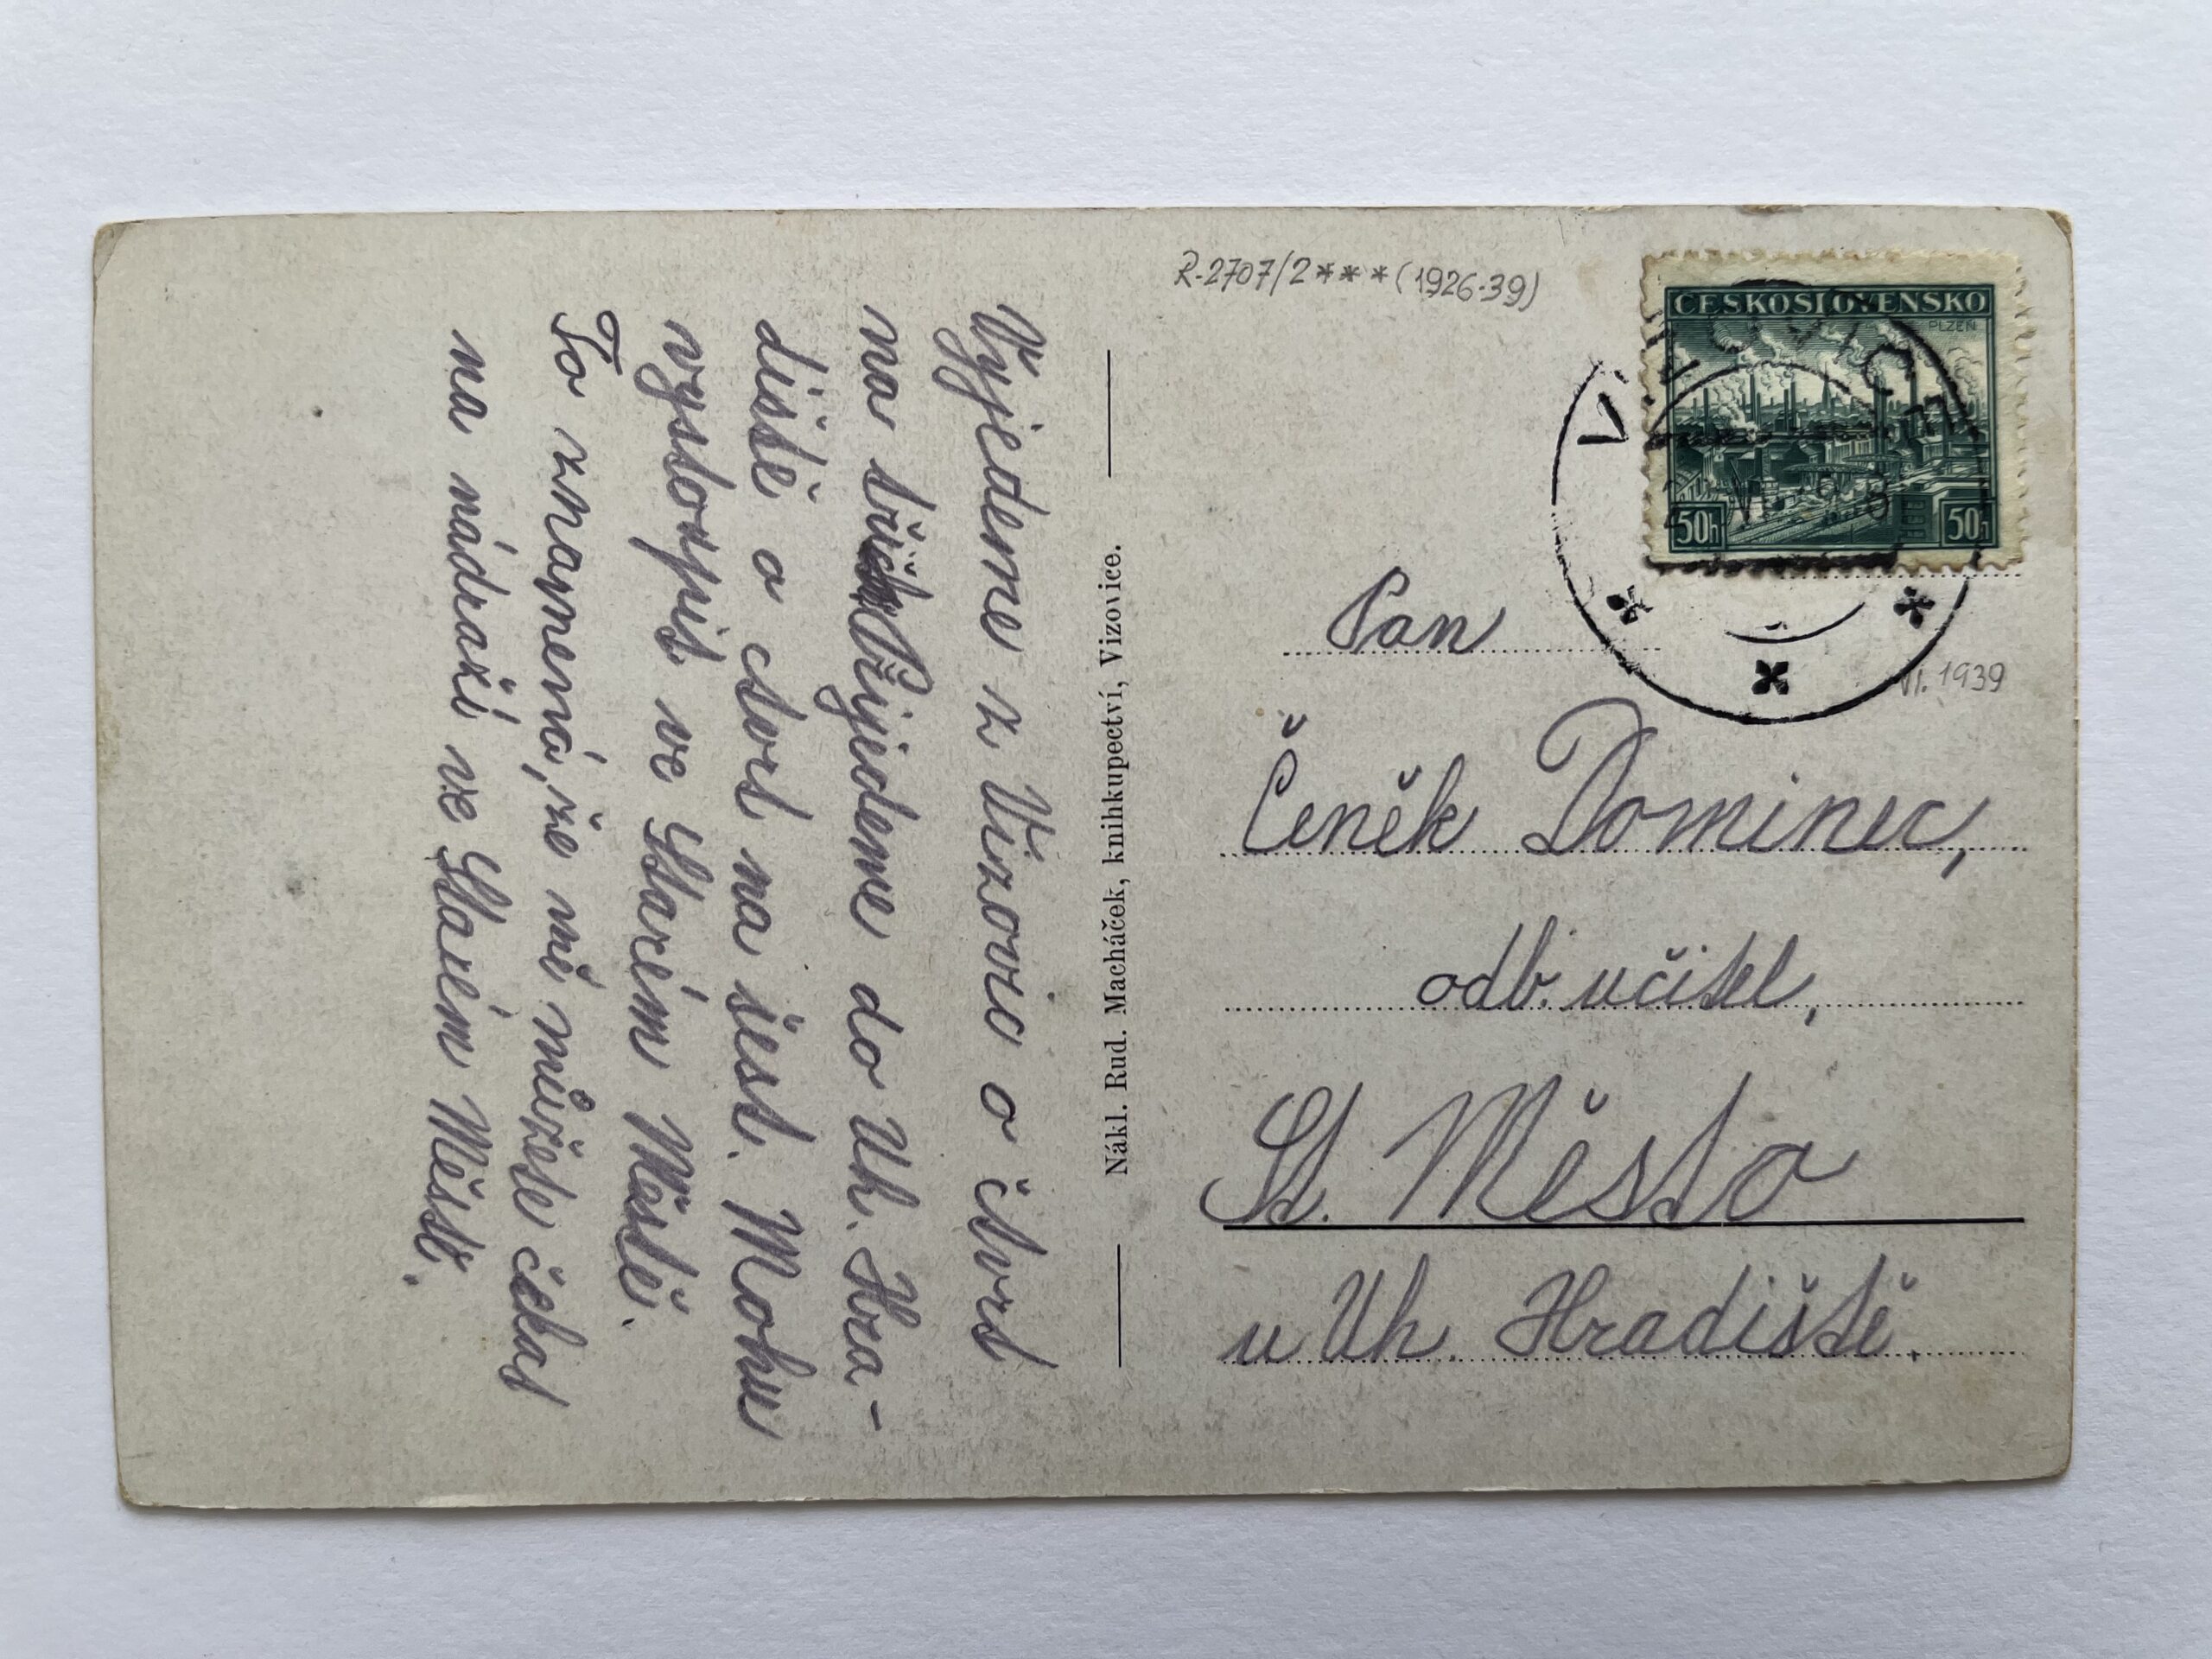 Vyjedeme z Vizovic o čtvrt
na Přijedeme do Uh. Hra-
diště o čtvrt na šest. Mohu
vystoupit ve Starém Městě.
To znamená, že mě můžete čekat
na nádraží ve Starém Městě.
Nákl. Rud. Macháček, knihkupectví, Vizovice.
R-2707/2***(1926-39)
ČESKOSLOVENSKO
PLZEŇ
50h 50h
VIZOVICE
VI. 1939
Pan
Čeněk Dominec,
odb. učitel,
St. Město
u Uh. Hradiště.